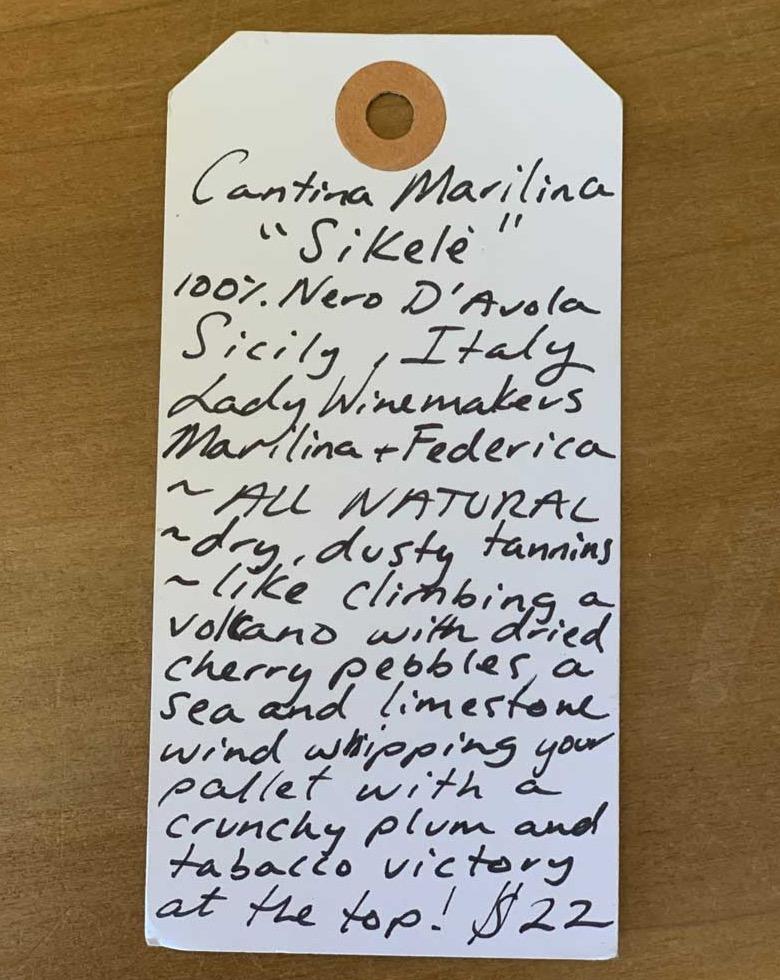 Cantina Marilina
"Sikelè"
100% Nero D'Avola
Sicily, Italy
Lady Winemakers
Marilina + Federica
~ ALL NATURAL
~dry, dusty tannins
~like climbing a
volkano with dried
cherry pebbles, a
sea and limestone
wind whipping your
pallet with a
crunchy plum and
tabacco victory
at the top! $22